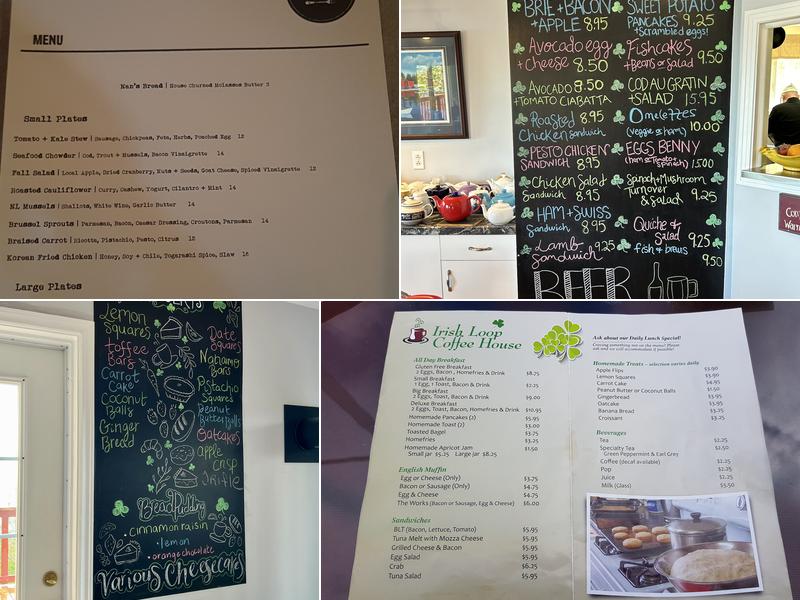 MENU
Nan's Bread | House Churned Molasses Butter 3
Small Plates
Tomato + Kale Stew | Sausage, Chickpeas, Feta, Herbs, Poached Egg 12
Seafood Chowder | Cod, Trout + Mussels, Bacon Vinaigrette 14
Fall Salad | Local Apple, Dried Cranberry, Nuts + Seeds, Goat Cheese, Spiced Vinaigrette 12
Roasted Cauliflower | Curry, Cashew, Yogurt, Cilantro + Mint 14
NL Mussels | Shallots, White Wine, Garlic Butter 14
Brussel Sprouts | Parmesan, Bacon, Caesar Dressing, Croutons, Parmesan 14
Braised Carrot | Ricotta, Pistachio, Pesto, Citrus 12
Korean Fried Chicken | Honey, Soy + Chile, Togarashi Spice, Slaw 16
Large Plates
BRIE + BACON
+ APPLE 8.95
Avocado egg
+ Cheese 8.50
AVOCADO 8.50
+ TOMATO CIABATTA
Roasted 8.95
Chicken Sandwich
PESTO CHICKEN
SANDWICH 8.95
Chicken Salad
Sandwich 8.95
HAM + SWISS
Sandwich 8.95
Lamb 9.25
Sandwich
BEER
SWEET POTATO
PANCAKES 9.25
+ Scrambled eggs!
Fishcakes
+ Beans or Salad 9.50
COD AU GRATIN
+ SALAD 15.95
Omelettes
(veggie or ham) 10.00
EGGS BENNY
(ham or Tomato + Spinach) 15.00
Spinach + Mushroom
Turnover
& Salad 9.25
Quiche &
Salad 9.25
fish & brews
9.50
Lemon
Squares
toffee
Bars
Carrot
Cake
Coconut
Balls
Ginger
Bread
Date
Squares
Nanaimo
Bars
Pistachio
Squares
peanut
Butter Balls
Oatcakes
apple
crisp
Trifle
Bread Pudding
• cinnamon raisin
• lemon
• orange chocolate
Various Cheesecakes
Irish Loop
Coffee House
All Day Breakfast
Gluten Free Breakfast
2 Eggs, Bacon, Homefries & Drink $8.75
Small Breakfast
1 Egg, 1 Toast, Bacon & Drink $2.25
Big Breakfast
2 Eggs, Toast, Bacon & Drink $9.00
Deluxe Breakfast
2 Eggs, Toast, Bacon, Homefries & Drink $10.95
Homemade Pancakes (2) $5.95
Homemade Toast (2) $3.00
Toasted Bagel $3.25
Homefries $3.25
Homemade Apricot Jam $1.50
Small jar $5.25 Large jar $8.25
English Muffin
Egg or Cheese (Only) $3.75
Bacon or Sausage (Only) $4.75
Egg & Cheese $4.75
The Works (Bacon or Sausage, Egg & Cheese) $6.00
Sandwiches
BLT (Bacon, Lettuce, Tomato) $5.95
Tuna Melt with Mozza Cheese $5.95
Grilled Cheese & Bacon $5.95
Egg Salad $5.95
Crab $6.25
Tuna Salad $5.95
Ask about our Daily Lunch Special!
Craving something not on the menu? Please
ask and we will accommodate if possible!
Homemade Treats – selection varies daily
Apple Flips $3.90
Lemon Squares $3.90
Carrot Cake $4.95
Peanut Butter or Coconut Balls $1.50
Gingerbread $3.95
Oatcake $3.95
Banana Bread $3.25
Croissant $3.25
Beverages
Tea $2.25
Specialty Tea $2.50
Green Peppermint & Earl Grey
Coffee (decaf available) $2.25
Pop $2.25
Juice $2.25
Milk (Glass) $3.50